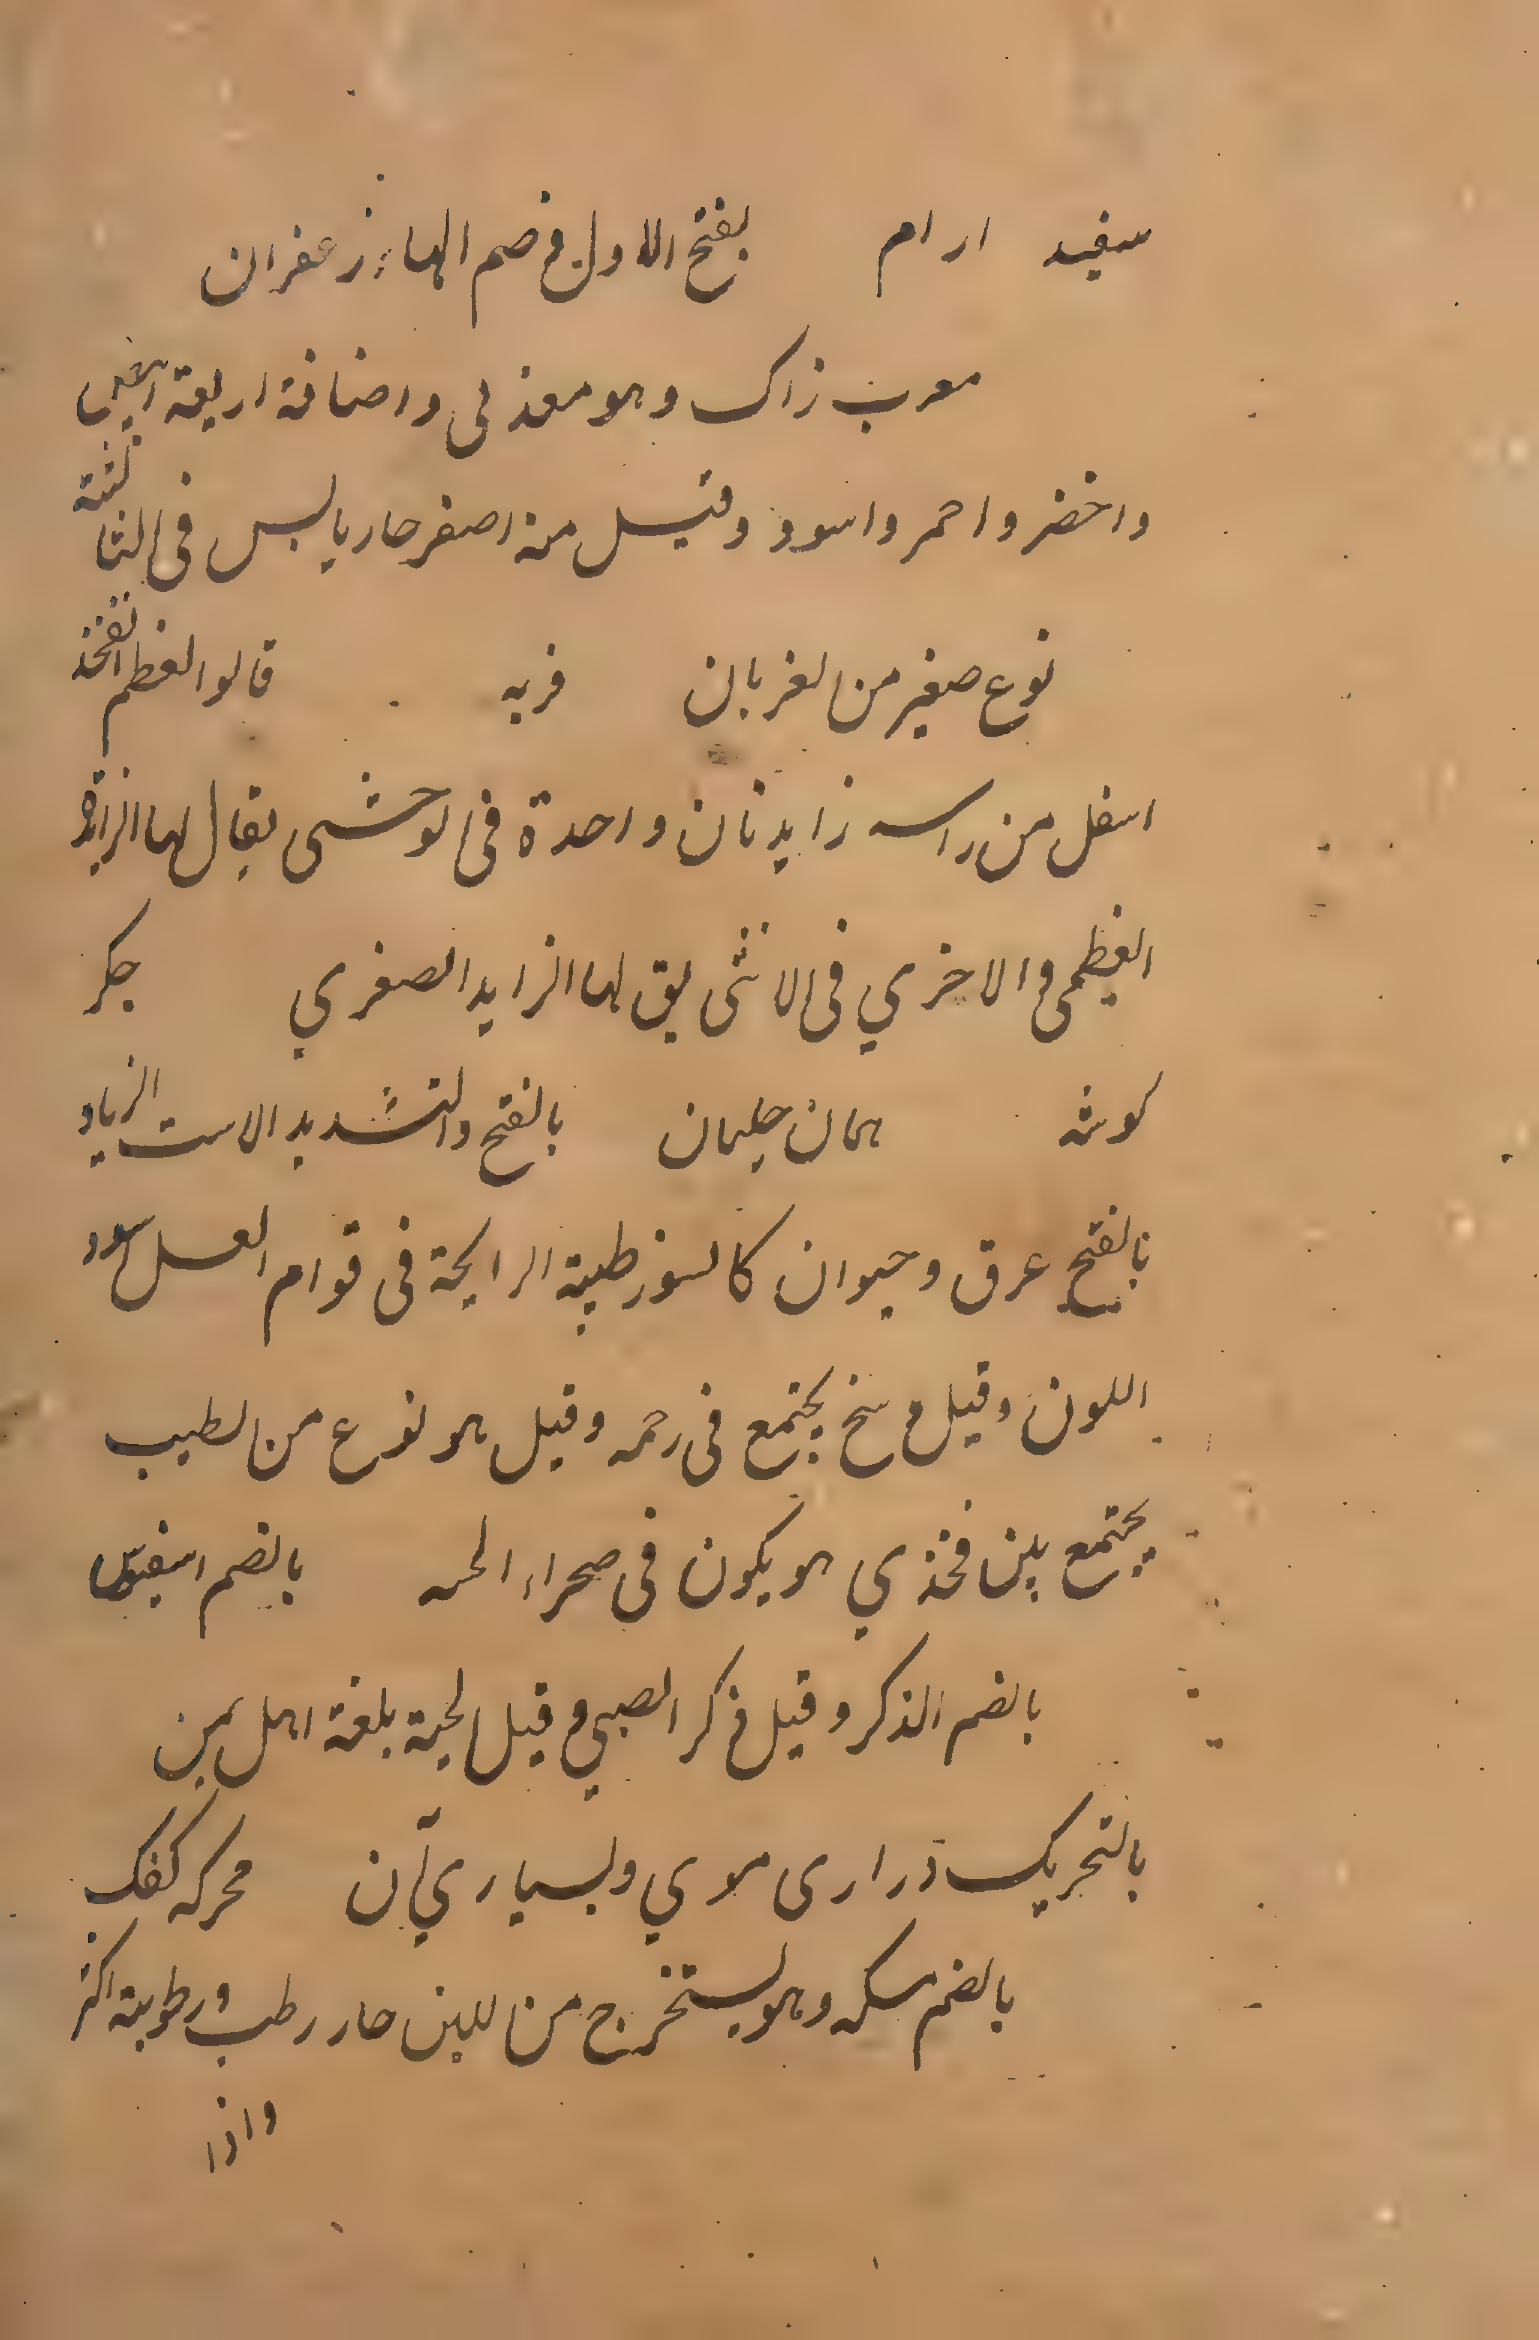 سفید ارام بفتح الاول و ضم الهاء زعفران
معرب زاک وهو معدنی و اضافة اربعة ابیض
واخضر واحمر واسود وقیل منه اصفر حار یابس فی الثالثة
نوع صغیر من الغربان فربه قالوا لعظم الفخذ
اسفل من راسه زایدتان واحدة فی الوحشی یقال لها الزایدة
العظمی والاخری فی الانثی یق لها الزاید الصغری جگر
گوشه همان جلیمان بالفتح والتشدید الاست الزیاد
بالفتح عرق وحیوان کالسنور طیبة الرایحة فی قوام العسل سود
اللون وقیل وسخ یجتمع فی رحمه وقیل هو نوع من الطیب
یجتمع بین فخذی هو یکون فی صحراء بالضم اسفیوس
بالضم الذکر وقیل ذکر الصبی وقیل لحیة بلغة اهل یمن
بالتحریک درازی موی وبسیاری آن محرکه کفک
بالضم مسکه وهو یستخرج من اللبن حار رطب ورطوبته اکثر
واذا